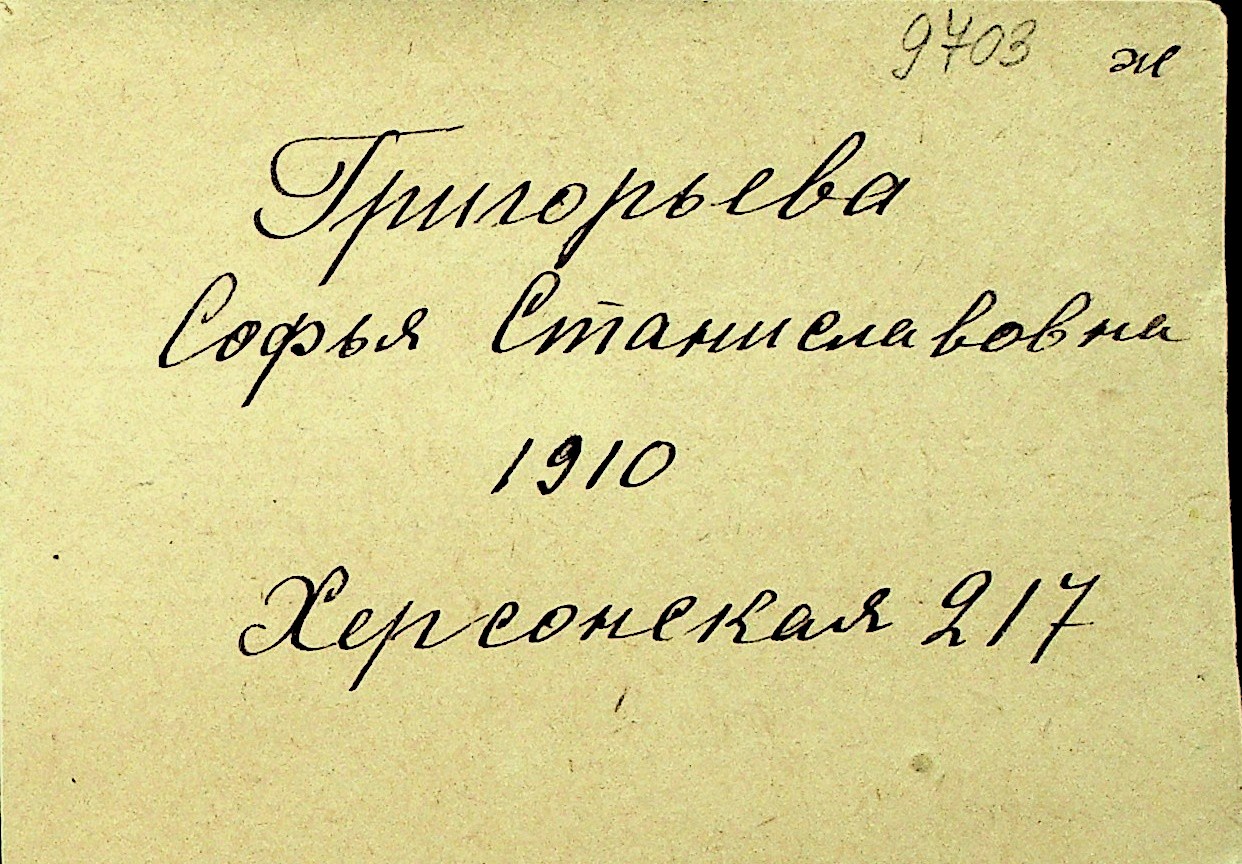 9703 ж
Григорьева
Софья Станиславовна
1910
Херсонская 217